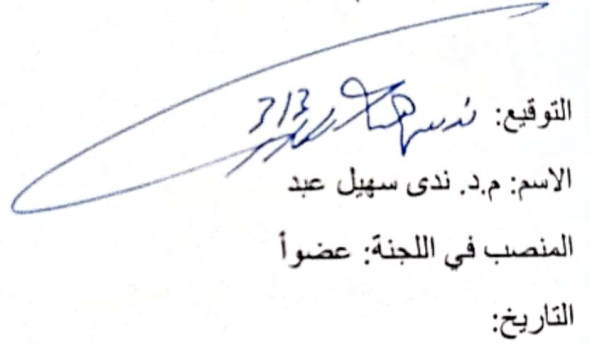 التوقيع: 3/3
الاسم: م.د. ندى سهيل عبد
المنصب في اللجنة: عضواً
التاريخ: